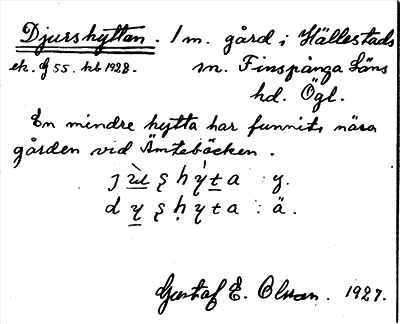 Djurshyttan. 1 m. gård i Hällestads
ek. bl 55. kt 1928. sn. Finspånga läns
hd. Ögl.
En mindre hytta har funnits nära
gården vid Ämtebäcken.
y.
d y s h y t a : ä.
Gustaf E. Olsson. 1927.